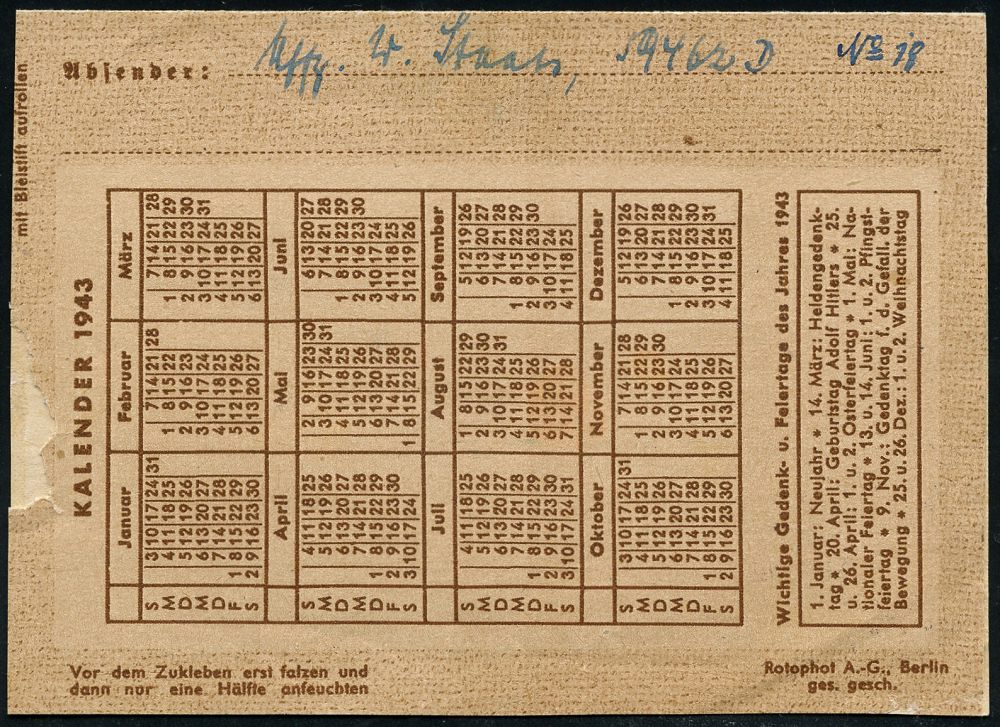 Absender: Uffz. W. Staats, 19462 D No 18
mit Bleistift aufrollen
KALENDER 1943
Januar Februar März
S 3 10 17 24 31 7 14 21 28 7 14 21 28
M 4 11 18 25 1 8 15 22 1 8 15 22 29
D 5 12 19 26 2 9 16 23 2 9 16 23 30
M 6 13 20 27 3 10 17 24 3 10 17 24 31
D 7 14 21 28 4 11 18 25 4 11 18 25
F 1 8 15 22 29 5 12 19 26 5 12 19 26
S 2 9 16 23 30 6 13 20 27 6 13 20 27
April Mai Juni
S 4 11 18 25 2 9 16 23 30 6 13 20 27
M 5 12 19 26 3 10 17 24 31 7 14 21 28
D 6 13 20 27 4 11 18 25 1 8 15 22 29
M 7 14 21 28 5 12 19 26 2 9 16 23 30
D 1 8 15 22 29 6 13 20 27 3 10 17 24
F 2 9 16 23 30 7 14 21 28 4 11 18 25
S 3 10 17 24 1 8 15 22 29 5 12 19 26
Juli August September
S 4 11 18 25 1 8 15 22 29 5 12 19 26
M 5 12 19 26 2 9 16 23 30 6 13 20 27
D 6 13 20 27 3 10 17 24 31 7 14 21 28
M 7 14 21 28 4 11 18 25 1 8 15 22 29
D 1 8 15 22 29 5 12 19 26 2 9 16 23 30
F 2 9 16 23 30 6 13 20 27 3 10 17 24
S 3 10 17 24 31 7 14 21 28 4 11 18 25
Oktober November Dezember
S 3 10 17 24 31 7 14 21 28 5 12 19 26
M 4 11 18 25 1 8 15 22 29 6 13 20 27
D 5 12 19 26 2 9 16 23 30 7 14 21 28
M 6 13 20 27 3 10 17 24 1 8 15 22 29
D 7 14 21 28 4 11 18 25 2 9 16 23 30
F 1 8 15 22 29 5 12 19 26 3 10 17 24 31
S 2 9 16 23 30 6 13 20 27 4 11 18 25
Wichtige Gedenk- u. Feiertage des Jahres 1943
1. Januar: Neujahr * 14. März: Heldengedenk-
tag * 20. April: Geburtstag Adolf Hitlers * 25.
u. 26. April: 1. u. 2. Osterfeiertag * 1. Mai: Na-
tionaler Feiertag * 13. u. 14. Juni: 1. u. 2. Pfingst-
feiertag * 9. Nov.: Gedenktag f. d. Gefall. der
Bewegung * 25. u. 26. Dez.: 1. u. 2. Weihnachtstag
Vor dem Zukleben erst falzen und
dann nur eine Hälfte anfeuchten
Rotophot A.-G., Berlin
ges. gesch.